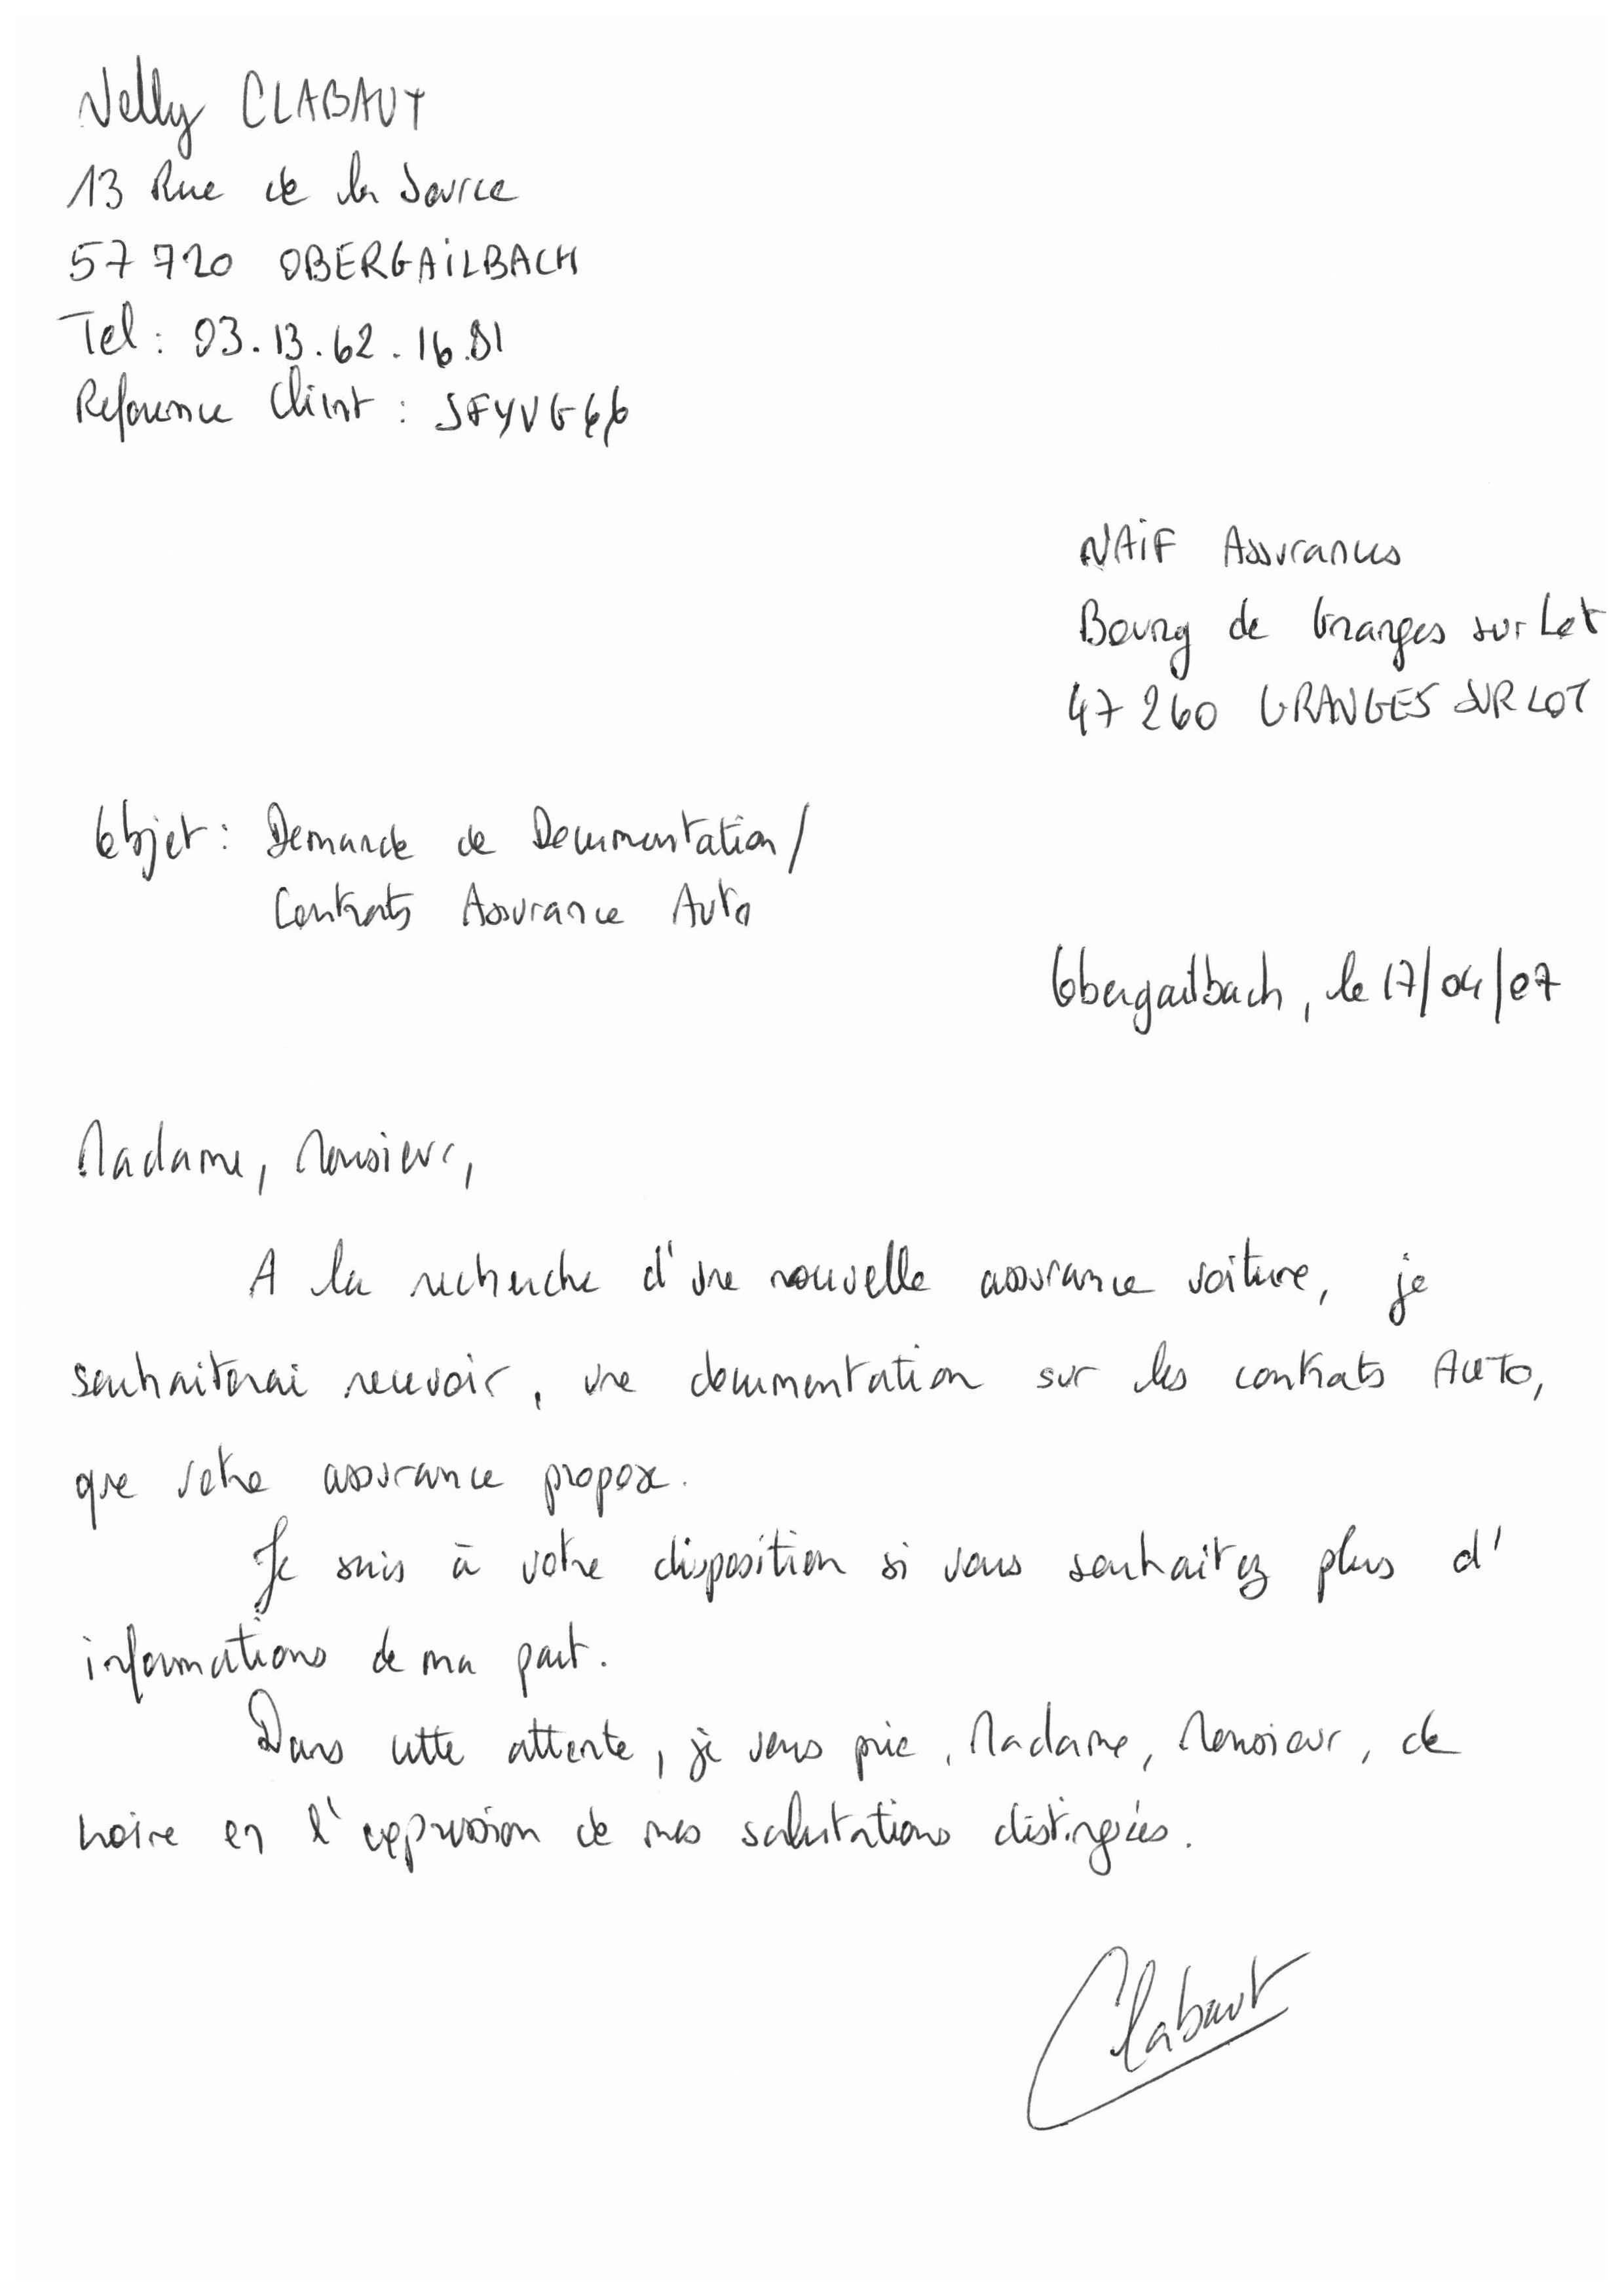 Nelly CLABAUT
13 Rue de la Source
57 720 OBERGAILBACH
Tel : 03.13.62.16.81
Reference Client : SFYVG66
NAIF Assurances
Bourg de Granges sur Lot
47 260 GRANGES SUR LOT
Objet : Demande de Documentation/
Contrats Assurance Auto
Obergailbach, le 17/04/07
Madame, Monsieur,
A la recherche d'une nouvelle assurance voiture, je
souhaiterai recevoir, une documentation sur les contrats AUTO,
que votre assurance propose.
Je suis à votre disposition si vous souhaitez plus d'
informations de ma part.
Dans cette attente, je vous prie, Madame, Monsieur, de
croire en l'expression de mes salutations distingées.
Clabaut